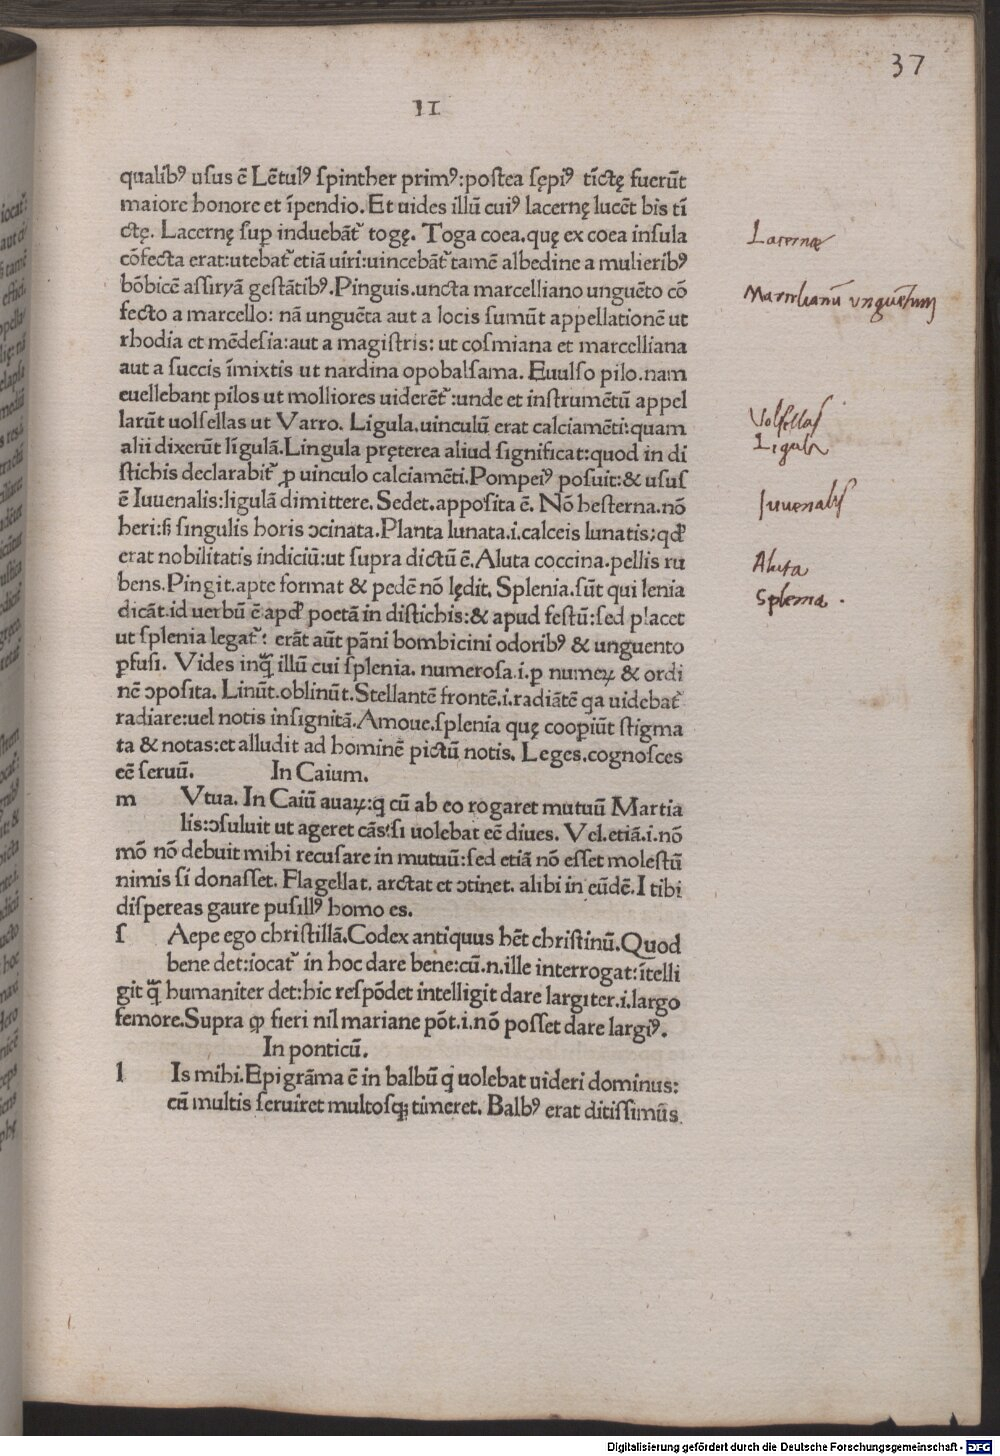 37
II
qualibꝰ uſus ē Lētulꝰ ſpinther primꝰ:poſtea ſępiꝰ tīctę fuerūt
maiore honore et īpendio. Et uides illū cuiꝰ lacernę lucēt bis tī
ctę. Lacernę ſup̱ induebāt᷑ togę. Toga coea.quę ex coea inſula
cōfecta erat:utebat᷑ etiā uiri:uincebāt᷑ tamē albedine a mulieribꝰ
bōbicē aſſiryā geſtātibꝰ.Pinguis.uncta marcelliano unguēto cō
fecto a marcello: nā unguēta aut a locis ſumūt appellationē ut
rhodia et mēdeſia:aut a magiſtris: ut coſmiana et marcelliana
aut a ſuccis īmixtis ut nardina opobalſama. Euulſo pilo.nam
euellebant pilos ut molliores uiderēt᷑:unde et inſtrumētū appel
larūt uolſellas ut Varro. Ligula.uinculū erat calciamēti:quam
alii dixerūt līgulā.Lingula pręterea aliud ſignificat:quod in di
ſtichis declarabit᷑ ꝓ uinculo calciamēti.Pompeiꝰ poſuit:& uſus
ē Iuuenalis:ligulā dimittere. Sedet.appoſita ē. Nō heſterna.nō
heri:ſꝫ ſingulis horis ↄcinata.Planta lunata.i.calceis lunatis;qđ
erat nobilitatis indiciū:ut ſupra dictū ē.Aluta coccina.pellis ru
bens.Pingit.apte format & pedē nō lędit. Splenia.ſūt qui lenia
dicāt.id uerbū ē apđ poetā in diſtichis:& apud feſtū:ſed placet
ut ſplenia legat᷑: erāt aūt pāni bombicini odoribꝰ & unguento
ꝑfuſi. Vides inꝗ illū cui ſplenia. numeroſa.i.ꝑ numeꝝ & ordi
nē ↄpoſita. Linūt.oblinūt.Stellantē frontē.i.radiātē ꝗa uidebat᷑
radiare:uel notis inſignitā.Amoue.ſplenia quę coopiūt ſtigma
ta & notas:et alludit ad hominē pictū notis. Leges.cognoſces
eē ſeruū. In Caium.
m Vtua. In Caiū auaꝝ:ꝗ cū ab eo rogaret mutuū Martia
lis:ↄſuluit ut ageret cās:ſi uolebat eē diues. Vel.etiā.i.nō
mō nō debuit mihi recuſare in mutuū:ſed etiā nō eſſet moleſtū
nimis ſi donaſſet. Flagellat. arctat et ↄtinet. alibi in eūdē.I tibi
diſpereas gaure puſillꝰ homo es.
ſ Aepe ego chriſtillā.Codex antiquus hēt chriſtinū.Quod
bene det:iocat᷑ in hoc dare bene:cū.n.ille interrogat:ītelli
git ꝙ humaniter det:hic reſpōdet intelligit dare largiter.i.largo
femore.Supra ꝙ fieri nil mariane pōt.i.nō poſſet dare largiꝰ.
In ponticū.
l Is mihi.Epigrāma ē in balbū ꝗ uolebat uideri dominus:
cū multis ſeruiret multoſqꝫ timeret. Balbꝰ erat ditiſſimus
Lacernæ
Marcellianū vnguētum
Volſellas
Ligula
Iuuenalis
Aluta
Splenia.
Digitalisierung gefördert durch die Deutsche Forschungsgemeinschaft - DFG